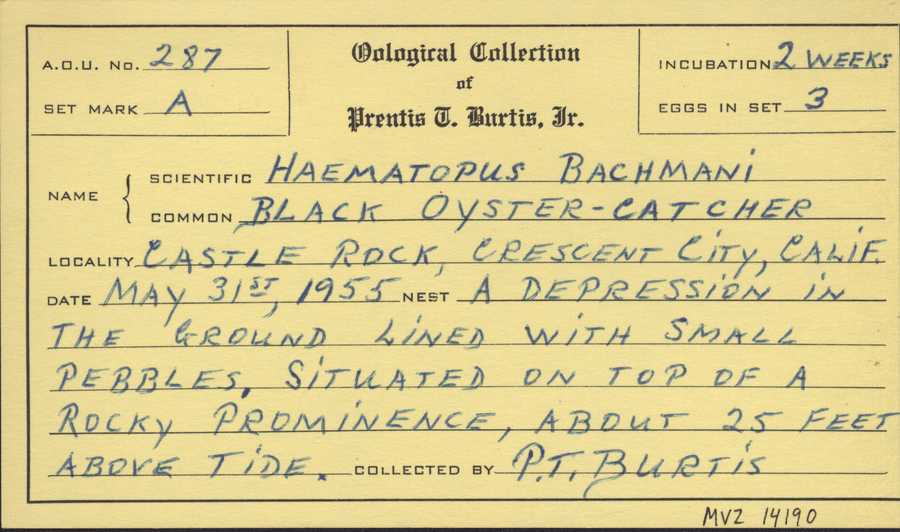 A.O.U. No. 287
SET MARK A
Oological Collection
of
Prentis T. Burtis, Jr.
INCUBATION 2 WEEKS
EGGS IN SET 3
NAME
SCIENTIFIC HAEMATOPUS BACHMANI
COMMON BLACK OYSTER-CATCHER
LOCALITY CASTLE ROCK, CRESCENT CITY, CALIF.
DATE MAY 31ST, 1955 NEST A DEPRESSION IN
THE GROUND LINED WITH SMALL
PEBBLES, SITUATED ON TOP OF A
ROCKY PROMINENCE, ABOUT 25 FEET
ABOVE TIDE. COLLECTED BY P.T. BURTIS
MVZ 14190